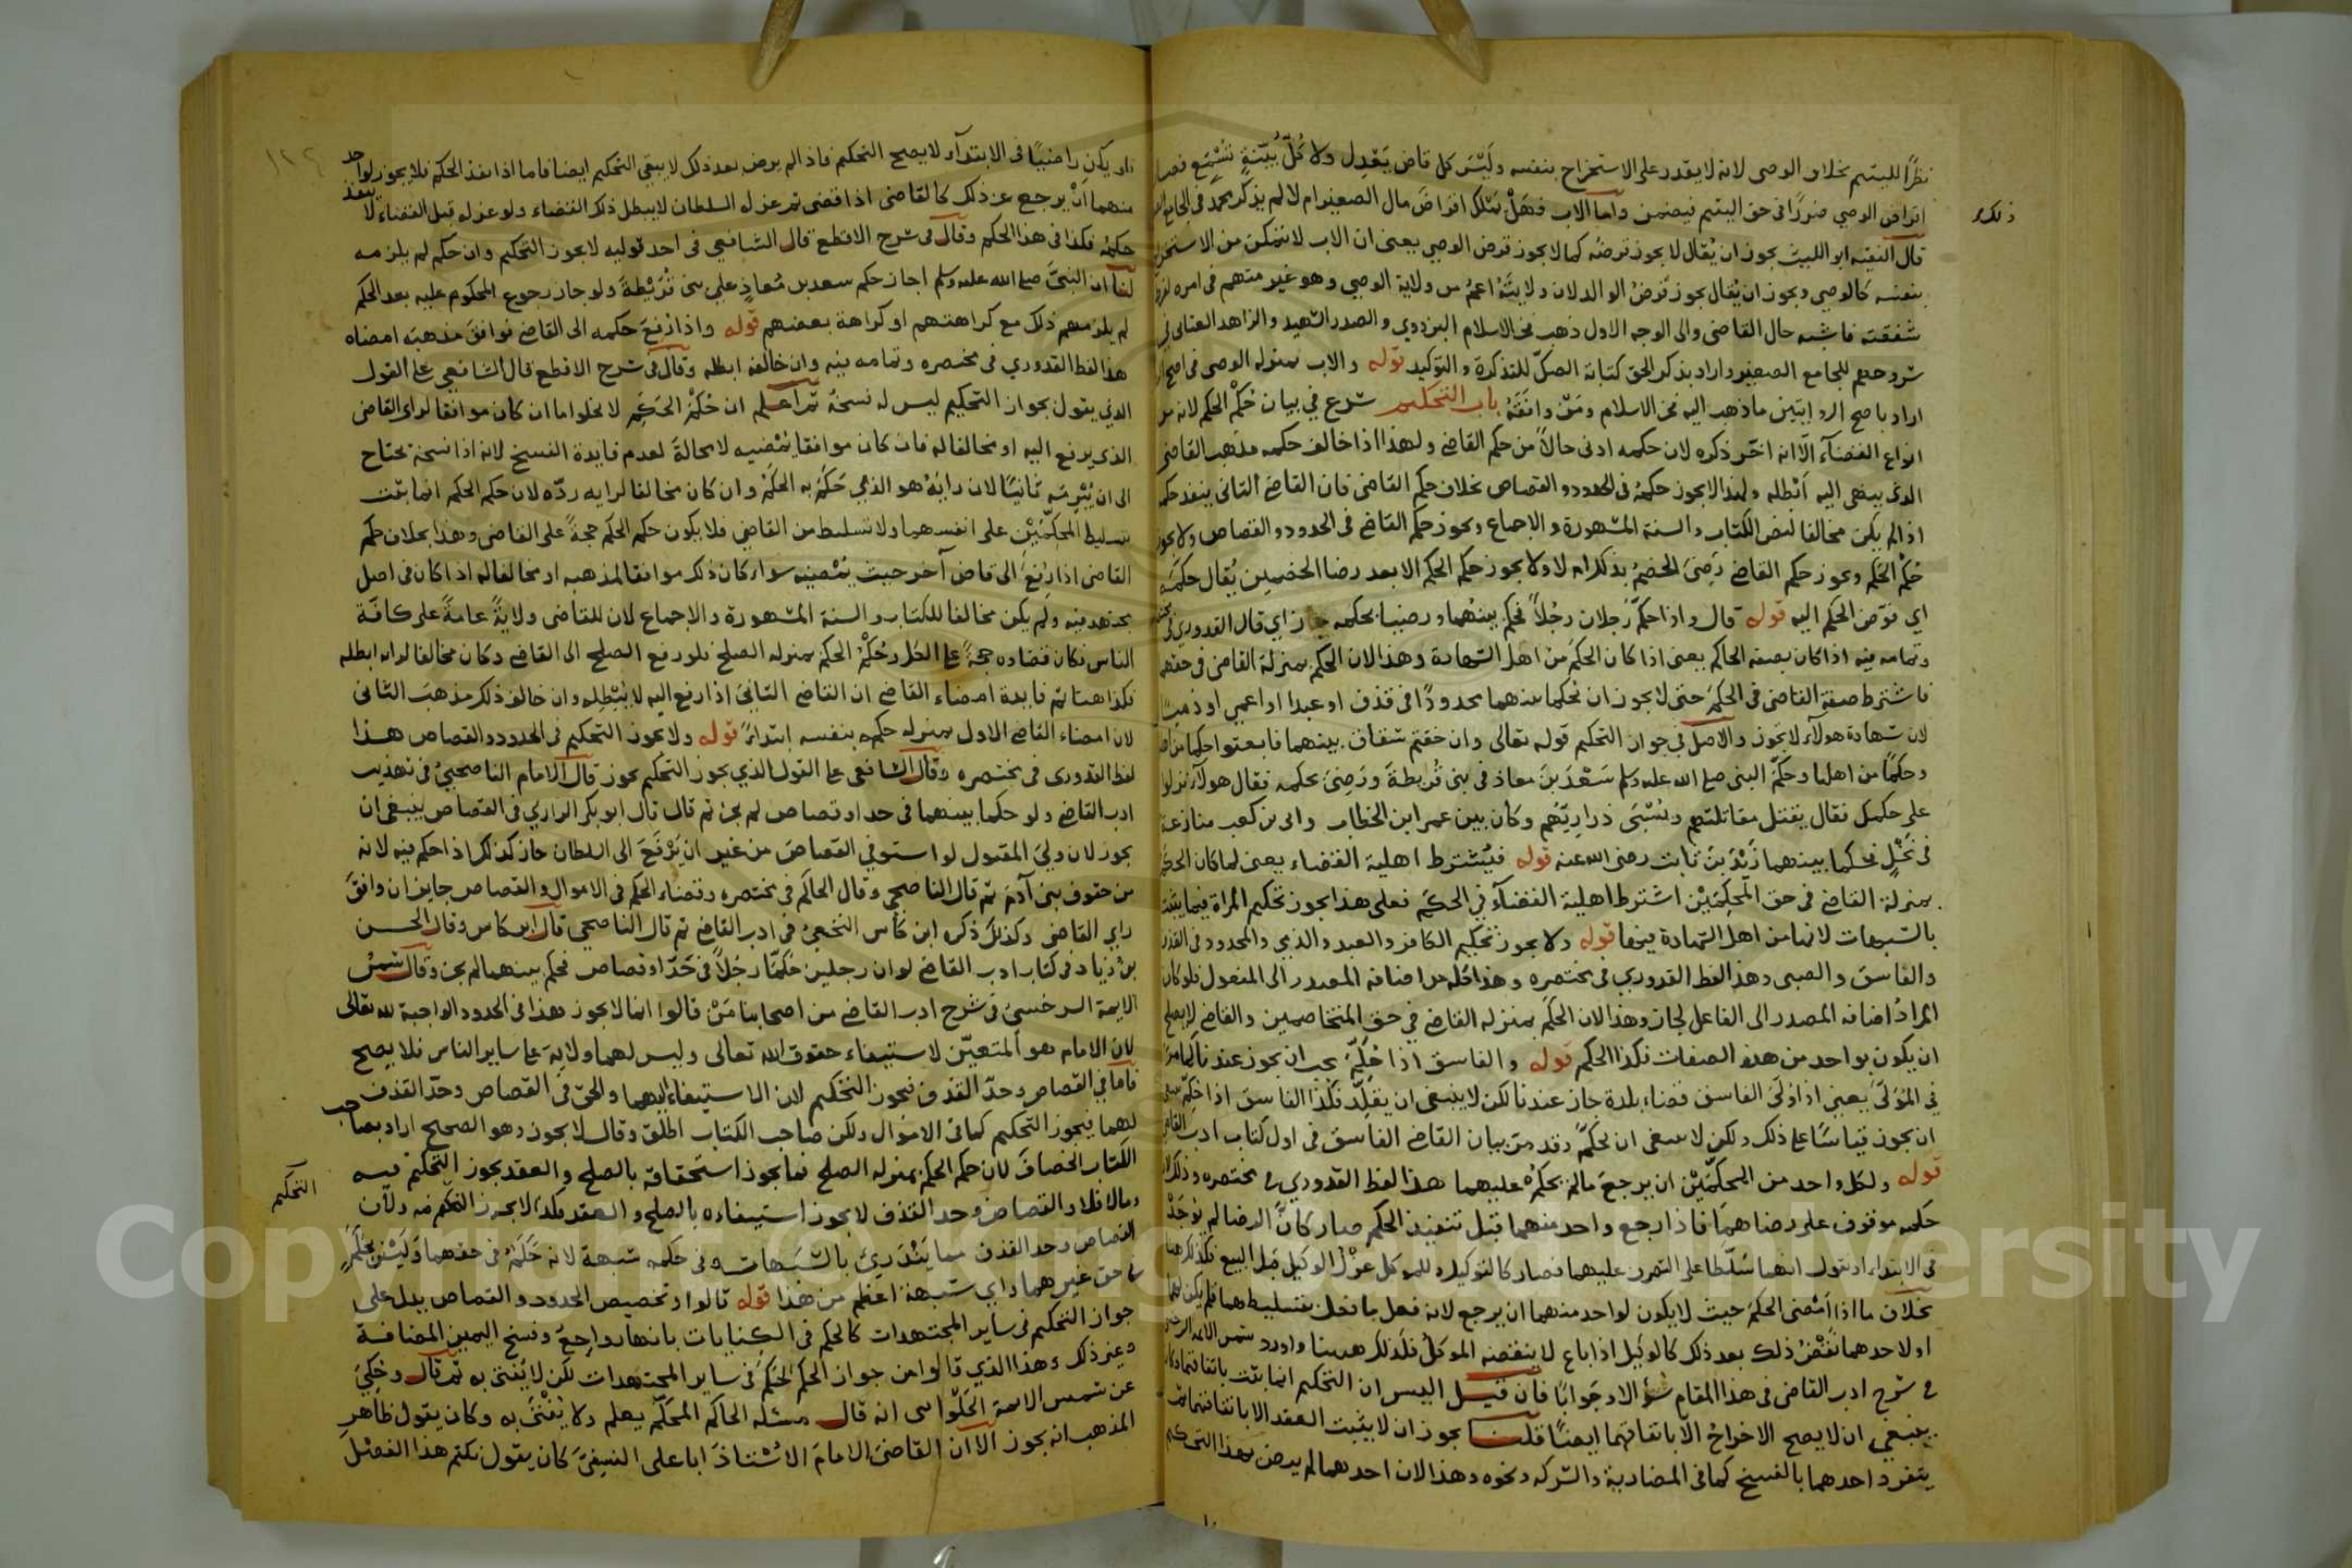 نظرًا لليتيم بخلاف الوصي لانه لا يقدر على الاستخراج بنفسه ولَيْسَ كل قاض يَعْدِل ولا كُلُّ بُيّنةٍ تُسْمَع فصار
اقراض الوصي ضررًا في حق اليتيم فيضمن واما الاب فهَلْ يَمْلك اقراضَ مال الصغير ام لا لم يذكر محمد في الجامع
ذلك
قال الفقيه ابو الليث يجوز ان يُقال لا يجوز قرضُه كما لا يجوز قرض الوصي يعنى ان الاب لا يتمكن من الاستخراج
بنفسه كالوصي ويجوز ان يُقال يجوز قَرضُ الوالد لان ولايتَهُ اعمّ من ولاية الوصي وهو غير متهم في امره
شفقته فاشبه حال القاضى والى الوجه الاول ذهب فخر الاسلام البزدوي والصدر الشهيد والزاهد العتابى في
شروحهم للجامع الصغير واراد بذكر الحق كتابة الصكّ للتذكرة والتوكيد قوله والاب بمنزله الوصى فى اصح
اراد باصح الروايتين ما ذهب اليه فخر الاسلام ومَنْ وافقَهُ باب التحكيم شرع في بيان حُكْم الحكم لانه من
انواع القضآء الّا انه اخّر ذكره لان حكمه ادنى حالاً من حكم القاضي ولهذا اذا خالف حكمه مذهب القاضى
الذى يمضى اليه اَبْطله ولهذا لا يجوز حكمهُ في الحدود والقصاص بخلاف حكم القاضى فان القاضى الثانى ينفذ حكمه
اذا لم يكن مخالفا لنص الكتاب والسنة المشهورة والاجماع ويجوز حكم القاضي في الحدود والقصاص ولا يجوز
حُكْم الحَكَم ويجوز حكم القاضي رَضِىَ الخصمُ بذلك ام لا ولا يجوز حكم الحكم الا بعد رضا الخصمين يُقال حَكمَّه
اي فوّض الحكم اليه قوله قال واذا حكّم رَجلان رجُلاً فحكم بينهُما ورضيا بحكمه جاز اي قال القدوري في
وتمامه فيه اذا كان بصفه الحاكم يعنى اذا كان الحكم من اهل الشهادة وهذا لان الحكم بمنزلة القاضى في حقهما
فاشترط صفة القاضى في الحكم حتى لا يجوز ان يحكما بينهما محدودًا في قذف او عبدا او اعمى او ذميا
لان شهادة هولآء لا تجوز والاصل في جواز التحكيم قوله تعالى وان خفتم شقاق بينهما فابعثوا حكما من اهله
وحكمًا من اهلها وحَكمّ النبى صلى الله عليه وسلم سَعْدَ بنَ معاذ في بنى قُريظةَ ورَضِىَ بحكمه فقال هولآء نزلوا
على حكمك فقال يقتل مقاتلتهم وتُسْبَى ذراريّهُم وكان بين عمر ابن الخطاب وابى بن كعب منازعة
في نَخْلٍ فحكما بينهما زَيْدَ بنَ ثابت رضى الله عنه قوله فيُشترط اهلية القضاء يعنى لما كان الحكم
بمنزلة القاضي في حق المحكِّمَيْن اشترط اهلية القضآء في الحكم فعلى هذا يجوز تحكيم المراة فيما يثبت
بالشبهات لانها من اهل الشهادة فيها قوله ولا يجوز تحكيم الكافر والعبد والذمي والمحدود في القذف
والفاسق والصبى وهذا لفظ القدوري في مختصره وهذا كله من اضافة المصدر الى المفعول فلو كان
المرادُ اضافه المصدر الى الفاعل لجاز وهذا لان الحكم بمنزله القاضي في حق المتخاصمين والقاضي لا يصلح
ان يكون بواحد من هذه الصفات فكذا الحكم قوله والفاسق اذا حُكّمَ يجب ان يجوز عندنا كما مرّ
في المُوَلّى يعنى اذا وُلّىَ الفاسق قضاء بلدة جاز عندنا لكن لا ينبغى ان يقلّد فكذا الفاسق اذا حُكِّم
ان يجوز قياسًا على ذلك ولكن لا ينبغى ان يُحكمَّ وقد مرّ بيان القاضي الفاسق في اول كتاب ادب القاضي
قوله ولكل واحد من المحكِّمَيْن ان يرجعَ ما لم يحكُم عليهما هذا لفظ القدوري في مختصره وذلك لان
حكمه موقوف على رضاهما فاذا رجع واحد منهما قبل تنفيذ الحكم صار كانَّ الرضا لم يُوجَدْ
في الابتداء او نقول انهما سُلّطا على التصرف عليهما فصار كالتوكيل وللموكل عَزْلُ الوكيل قبل البيع فكذلك هنا
بخلاف ما اذا اَمْضى الحكمَ حيث لا يكون لواحد منهما ان يرجع لانه فعل ما فعل بتسليطهما فلم يكن لهما
او لاحدهما نَقْضُ ذلك بعد ذلك كالوكيل اذا باع لا ينقضه الموكلُ فكذلك ههنا واورد شمس الائمة السرخسى
في شرح ادب القاضى فى هذا المقام سُؤالا وجَوابًا فان قيل اليس ان التحكيم انما يثبت باتفاقهما
ينبغي ان لا يصح الاخراجُ الّا باتفاقهما ايضًا قلنا يجوز ان لا يثبت العقد الا باتفاقهما ثم
يتفرد احدهما بالفسخ كما في المضاربة والشركه ونحوه وهذا لان احدهما لم يرض بهذا التحكيم
ولو يكن راضيًا في الابتدآء لا يصح التحكيم فاذا لم يرض بعد ذلك لا يبقى التحكيم ايضا فاما اذا نفذ الحكم فلا يجوز لواحد
منهما اَنْ يرجع عن ذلك كالقاضى اذا قضى ثم عزله السلطان لا يبطل ذلك القضاء ولو عزله قبل القضاء لا ينفذ
حكمُهُ فكذا في هذا الحكم وقال في شرح الاقطع قال الشافعي في احد قوليه لا يجوز التحكيم وان حكم لم يلزمه
لنا ان النبىَّ صلى الله عليه وسلم اجاز حكم سعد بن مُعاذٍ على بنى قُرَيْظةَ ولو جاز رجوع المحكوم عليه بعد الحكم
لم يلزمهم ذلك مع كراهتهم او كراهة بعضهم قوله واذا رُفِعَ حكمه الى القاضي فوافقَ مذهبَه امضاه
هذا لفظ القدوري في مختصره وتمامه فيه وان خالفه ابطله وقال في شرح الاقطع قال الشافعي على القول
الذي يقول بجواز التحكيم ليس له نسخهُ ثم اعلم ان حُكْمَ الحَكَم لا يخلو اما ان كان موافقا لراى القاضى
الذى يرفع اليه او مخالفا له فان كان موافقا يُمْضيه لا محالةَ لعدم فايدة الفسخ لانه اذا فسخه يحتاج
الى ان يُبْرِمَه ثانيًا لان رايَهُ هو الذي حَكَمَ به الحَكَمُ وان كان مخالفا لرايه ردّه لان حكم الحكم انما يثبت
بتسليط المحكّمَيْن على انفسهما ولا تسليط من القاضي فلا يكون حكم الحكم حجةً على القاضى وهذا بخلاف حكم
القاضى اذا رُفعَ الى قاض آخر حيث يُمْضيه سواء كان ذلك موافقا لمذهبه او مخالفا له اذا كان في اصل
مجتهد فيه ولم يكن مخالفا للكتاب والسنة المشهورة والاجماع لان للقاضى ولايةً عامةً على كافّة
الناس فكان قضاوه حجةً على الكل وحُكْمُ الحكم بمنزله الصلح فلو رفع الصلح الى القاضي وكان مخالفا لرايه ابطله
فكذا هنا ثم فايدة امضاء القاضي ان القاضي الثانىَ اذا رفع اليه لا يُبْطِله وان خالف ذلك مذهبَ الثانى
لان امضاء القاضي الاول بمنزله حكمه بنفسه ابتداءً قوله ولا يجوز التحكيم في الحدود والقصاص هذا
لفظ القدورى في مختصره وقال الشافعى على القول الذي يجوز التحكيم يجوز قال الامام الناصحيُ في تهذيب
ادب القاضي ولو حكما بينهما في حد او قصاص لم يجز ثم قال قال ابو بكر الرازي في القصاص ينبغى ان
يجوز لان وليَّ المقتول لو استوفي القصاصَ من غير ان يَرْفَعَ الى السلطان جاز كذلك اذا حكم فيه لانه
من حقوق بنى آدَمَ ثم قال الناصحى وقال الحاكم في مختصره وقضاء الحكم في الاموال والقصاص جايز ان وافقَ
راي القاضى وكذلك ذكره ابن كأس النخعىُ في ادب القاضي ثم قال الناصحي قال ابن كاس وقال الحسن
بنُ زياد في كتاب ادب القاضي لو ان رجلين حَكمّا رجُلاً في حَدّ او قصاص فحكم بينهما لم يجز وقال شمسُ
الايمة السرخسىُ في شرح ادب القاضي من اصحابنا مَنْ قالوا انما لا يجوز هذا في الحدود الواجبة لله تعالى
لان الامام هو المتعيّن لاستيفاء حقوق الله تعالى وليس لهما ولايةَ على ساير الناس فلا يصح
فاما في القصاص وحدّ القذف فيجوز التحكيم لان الاستيفاء اليهما والحق في القصاص وحدّ القذف
لهما فيجوز التحكيم كما في الاموال ولكن صاحب الكتاب اطلق وقال لا يجوز وهو الصحيح اراد بصاحب
الكتاب الخصافَ لان حكم الحكم بمنزله الصلح فما يجوز استحقاقه بالصلح والعقد يجوز التحكيم فيه
وما لا فلا والقصاص وحد القذف لا يجوز استيفاوه بالصلح والعقد فكذا لا يجوز التحكيم فيه ولان
التحكيم
القصاص وحد القذف مما يَنْدَرِئُ بالشبَهات وفي حكمه شبهة لانه حَكَمٌ في حقهما ولَيْسَ بحَكَمٍ
في حق غيرهما واي شبهة اعظم من هذا قوله قالوا وتخصيص الحدود والقصاص يدل على
جواز التحكيم في ساير المجتهدات كالحكم في الكنايات بانها رواجع وفسخ اليمين المضافة
وغير ذلك وهذا الذي قالوا من جواز الحكم الحكم في ساير المجتهدات لكن لا يُفتى به ثم قال وحُكِىَ
عن شمس الايمة الحَلْوانى انه قال مسئلة الحاكم المحكّم يعلم ولا يُفْتَى به وكان يقول ظاهر
المذهب انه يجوز الا ان القاضىَ الامامَ الاُسْتاذَ ابا على النسفىَّ كان يقول نكتم هذا الفصْلَ